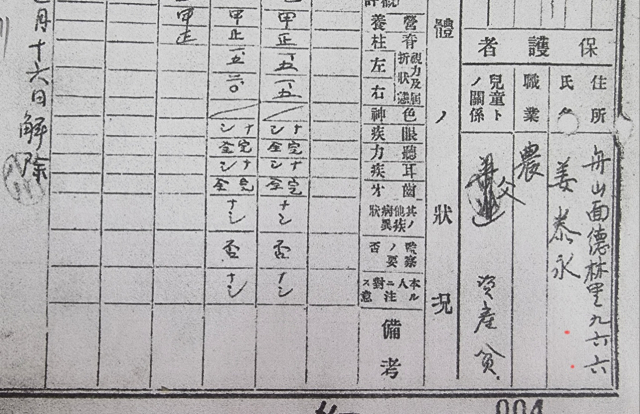 保護者
住所
舟山面德林里九六六
氏名
姜泰永
職業
農
兒童トノ關係
父
資産 貧
體ノ狀況
營養
脊柱
視力及屈折狀態
左
右
色神
眼疾
聽力
耳疾
齒牙
其ノ他疾病異狀
監察ノ要否
本人ニ對スル注意
備考
甲
正
一、五
一、五
ナシ
完全
ナシ
完全
ナシ
否
ナシ
甲
正
一、五
二、〇
ナシ
完全
ナシ
完全
ナシ
否
ナシ
甲
正
月十六日解除